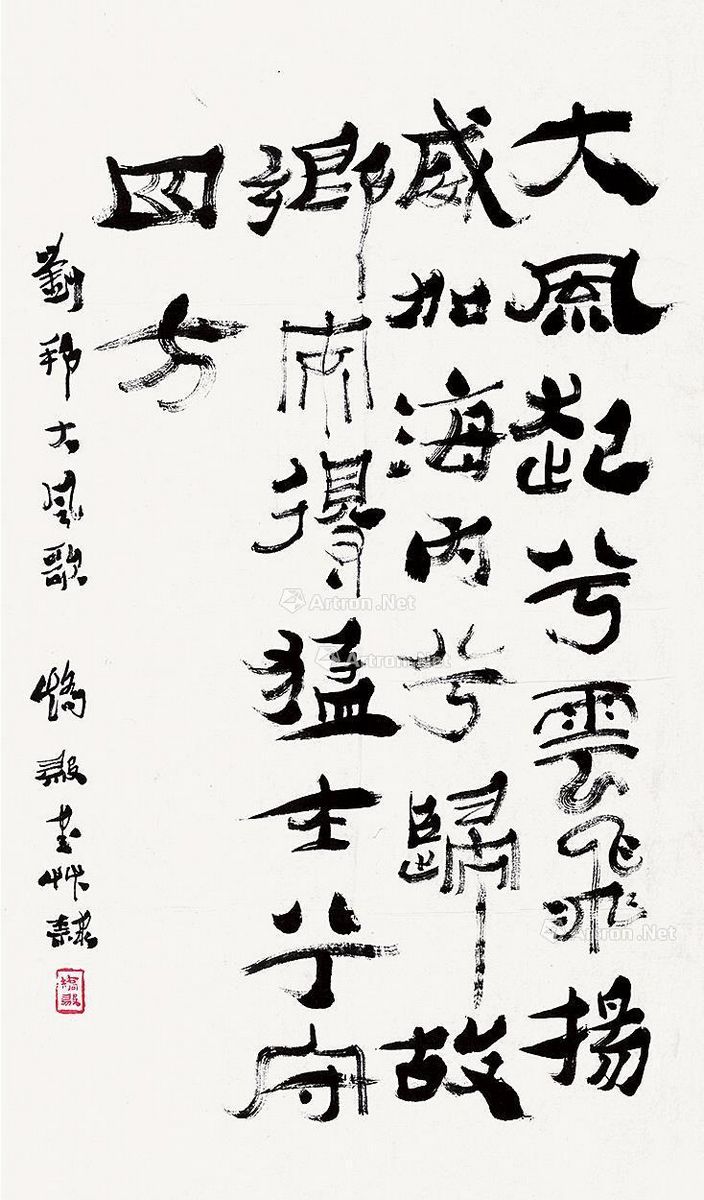 大風起兮雲飛揚
威加海内兮歸故
鄉安得猛士兮守
四方
劉邦大風歌 矯毅書艸隸
矯毅
Artron.Net
Artron.Net
Artron.Net